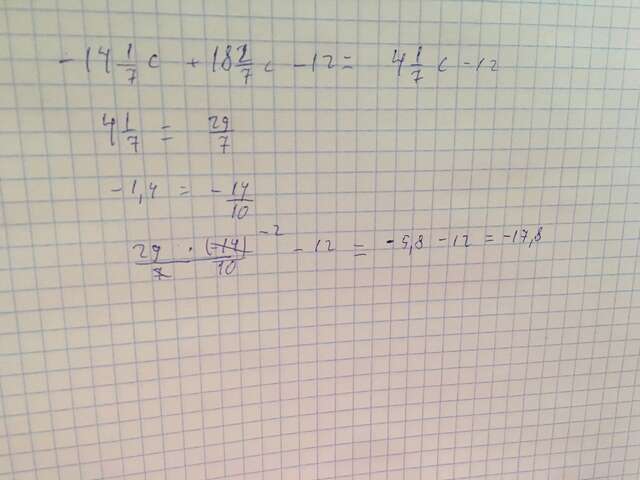 -14 1/7 c + 18 2/7 c - 12 = 4 1/7 c - 12
4 1/7 = 29/7
-1,4 = -14/10
29 · (-14) -2 / 7 10 - 12 = -5,8 - 12 = -17,8